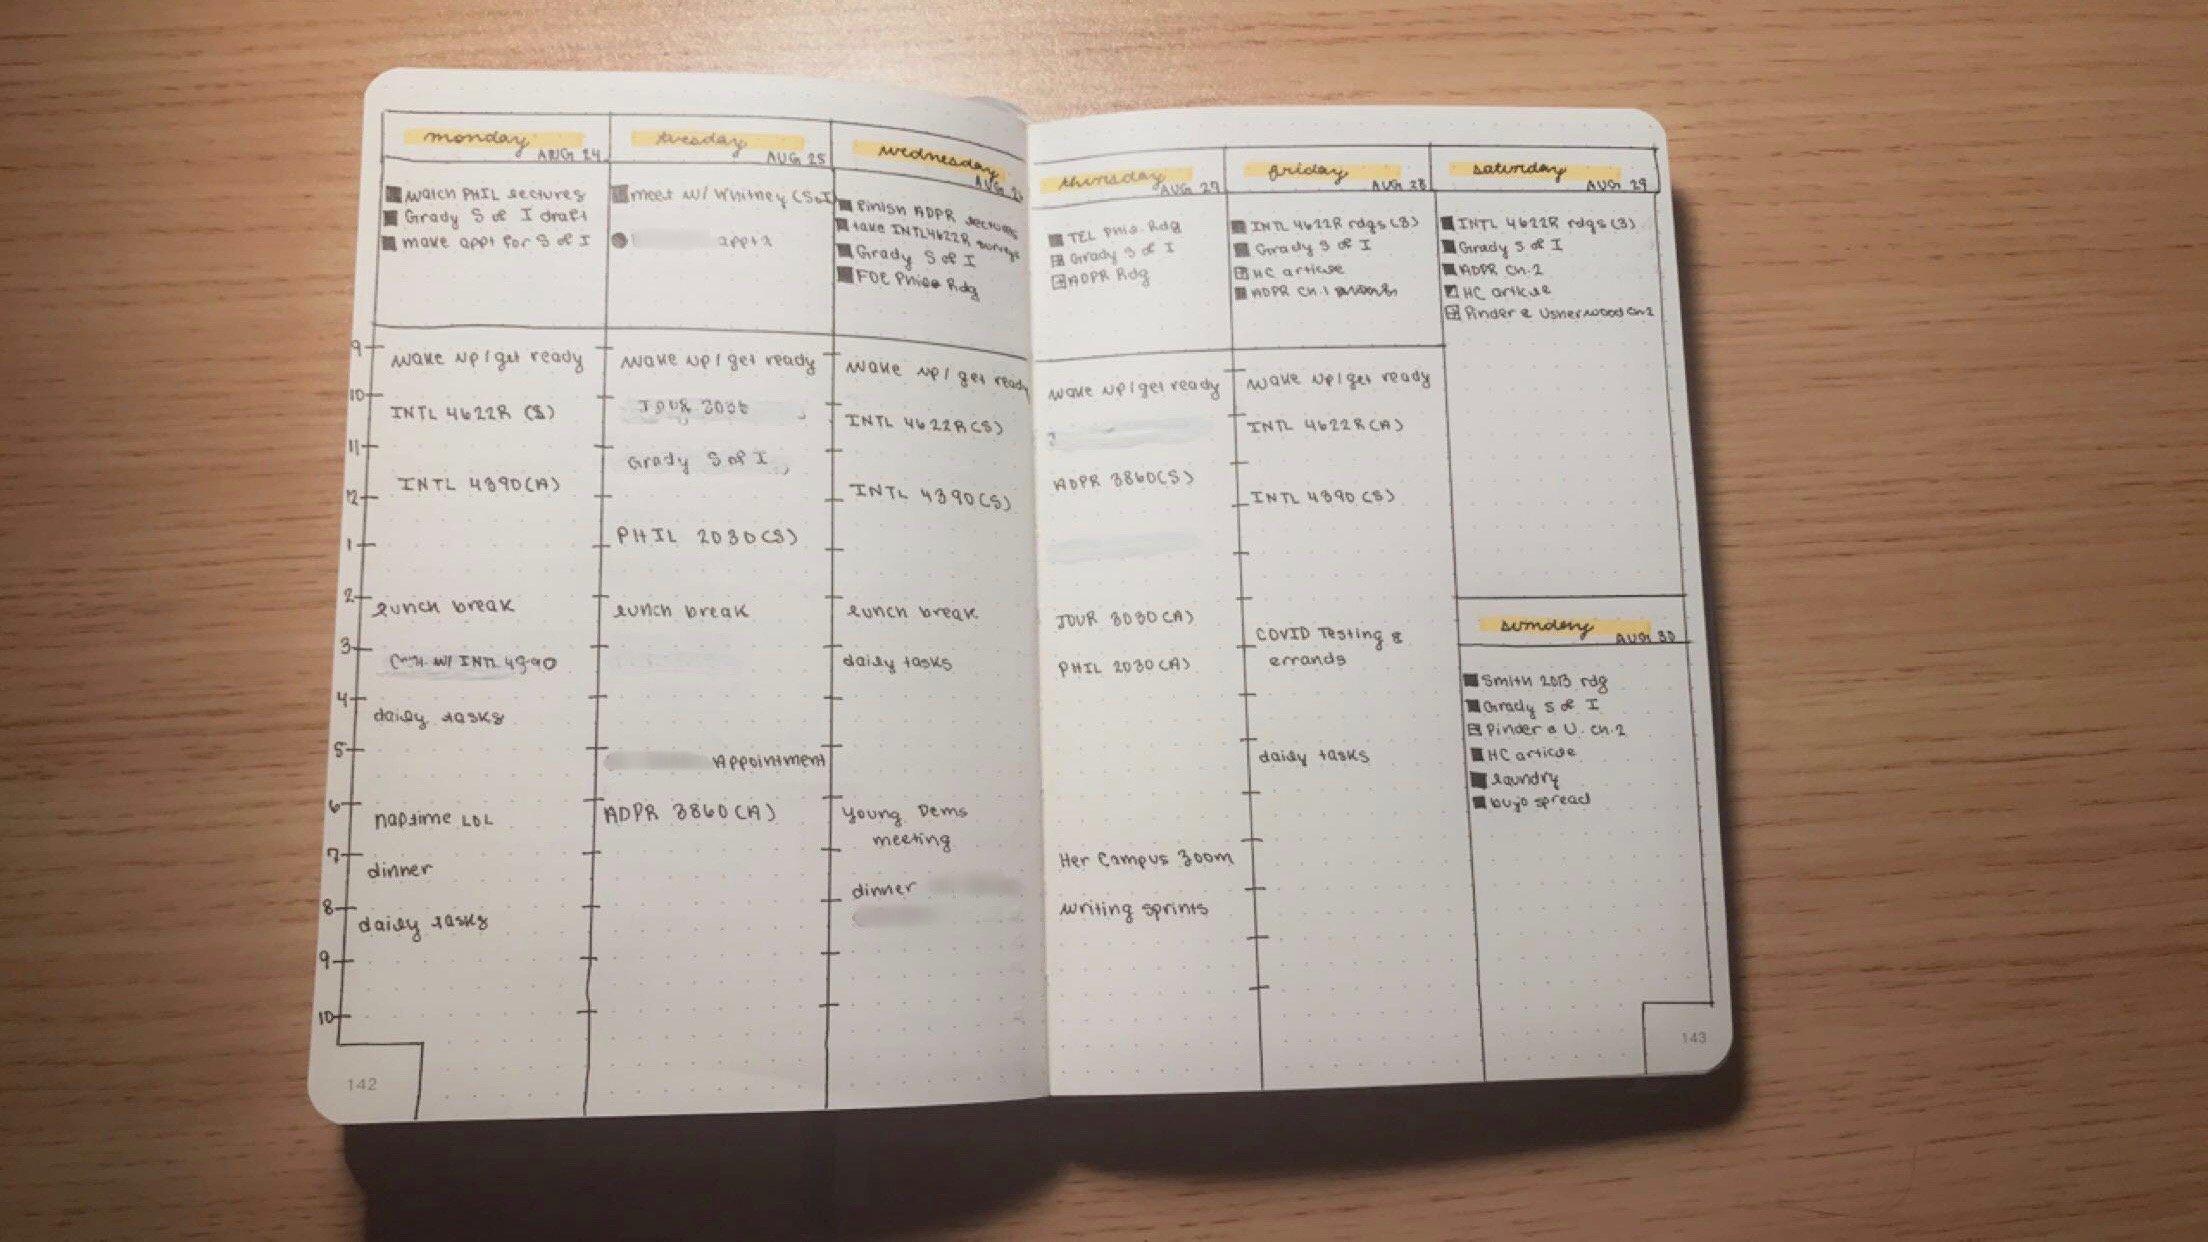 monday
AUG 24
watch PHIL lectures
Grady S of I draft
make appt for S of I
9
wake up/get ready
10
INTL 4622R (S)
11
INTL 4390(A)
12
1
2
lunch break
3
w/ INTL
4
daily tasks
5
6
naptime LOL
7
dinner
8
daily tasks
9
10
142
tuesday
AUG 25
meet w/ Whitney (S of I)
wake up/get ready
Grady S of I
PHIL 2030(S)
lunch break
Appointment
ADPR 3860(A)
wednesday
AUG
finish ADPR lectures
take INTL4622R survey
Grady S of I
FOE Phil Rdg
wake up/get ready
INTL 4622R(S)
INTL 4390(S)
lunch break
daily tasks
Young Dems
meeting
dinner
thursday
AUG 27
TEL Phil. Rdg
Grady S of I
ADPR Rdg
wake up/get ready
ADPR 3860(S)
JOUR 3030(A)
PHIL 2030(A)
Her Campus zoom
writing sprints
friday
AUG 28
INTL 4622R rdgs(3)
Grady S of I
HC article
ADPR Ch.1
wake up/get ready
INTL 4622R(A)
INTL 4390(S)
COVID Testing &
errands
daily tasks
saturday
AUG 29
INTL 4622R rdgs(3)
Grady S of I
ADPR Ch.2
HC article
Pinder & Usherwood Ch 2
sunday
AUG 30
Smith 2013 rdg
Grady S of I
Pinder & U. Ch.2
HC article
laundry
bujo spread
143